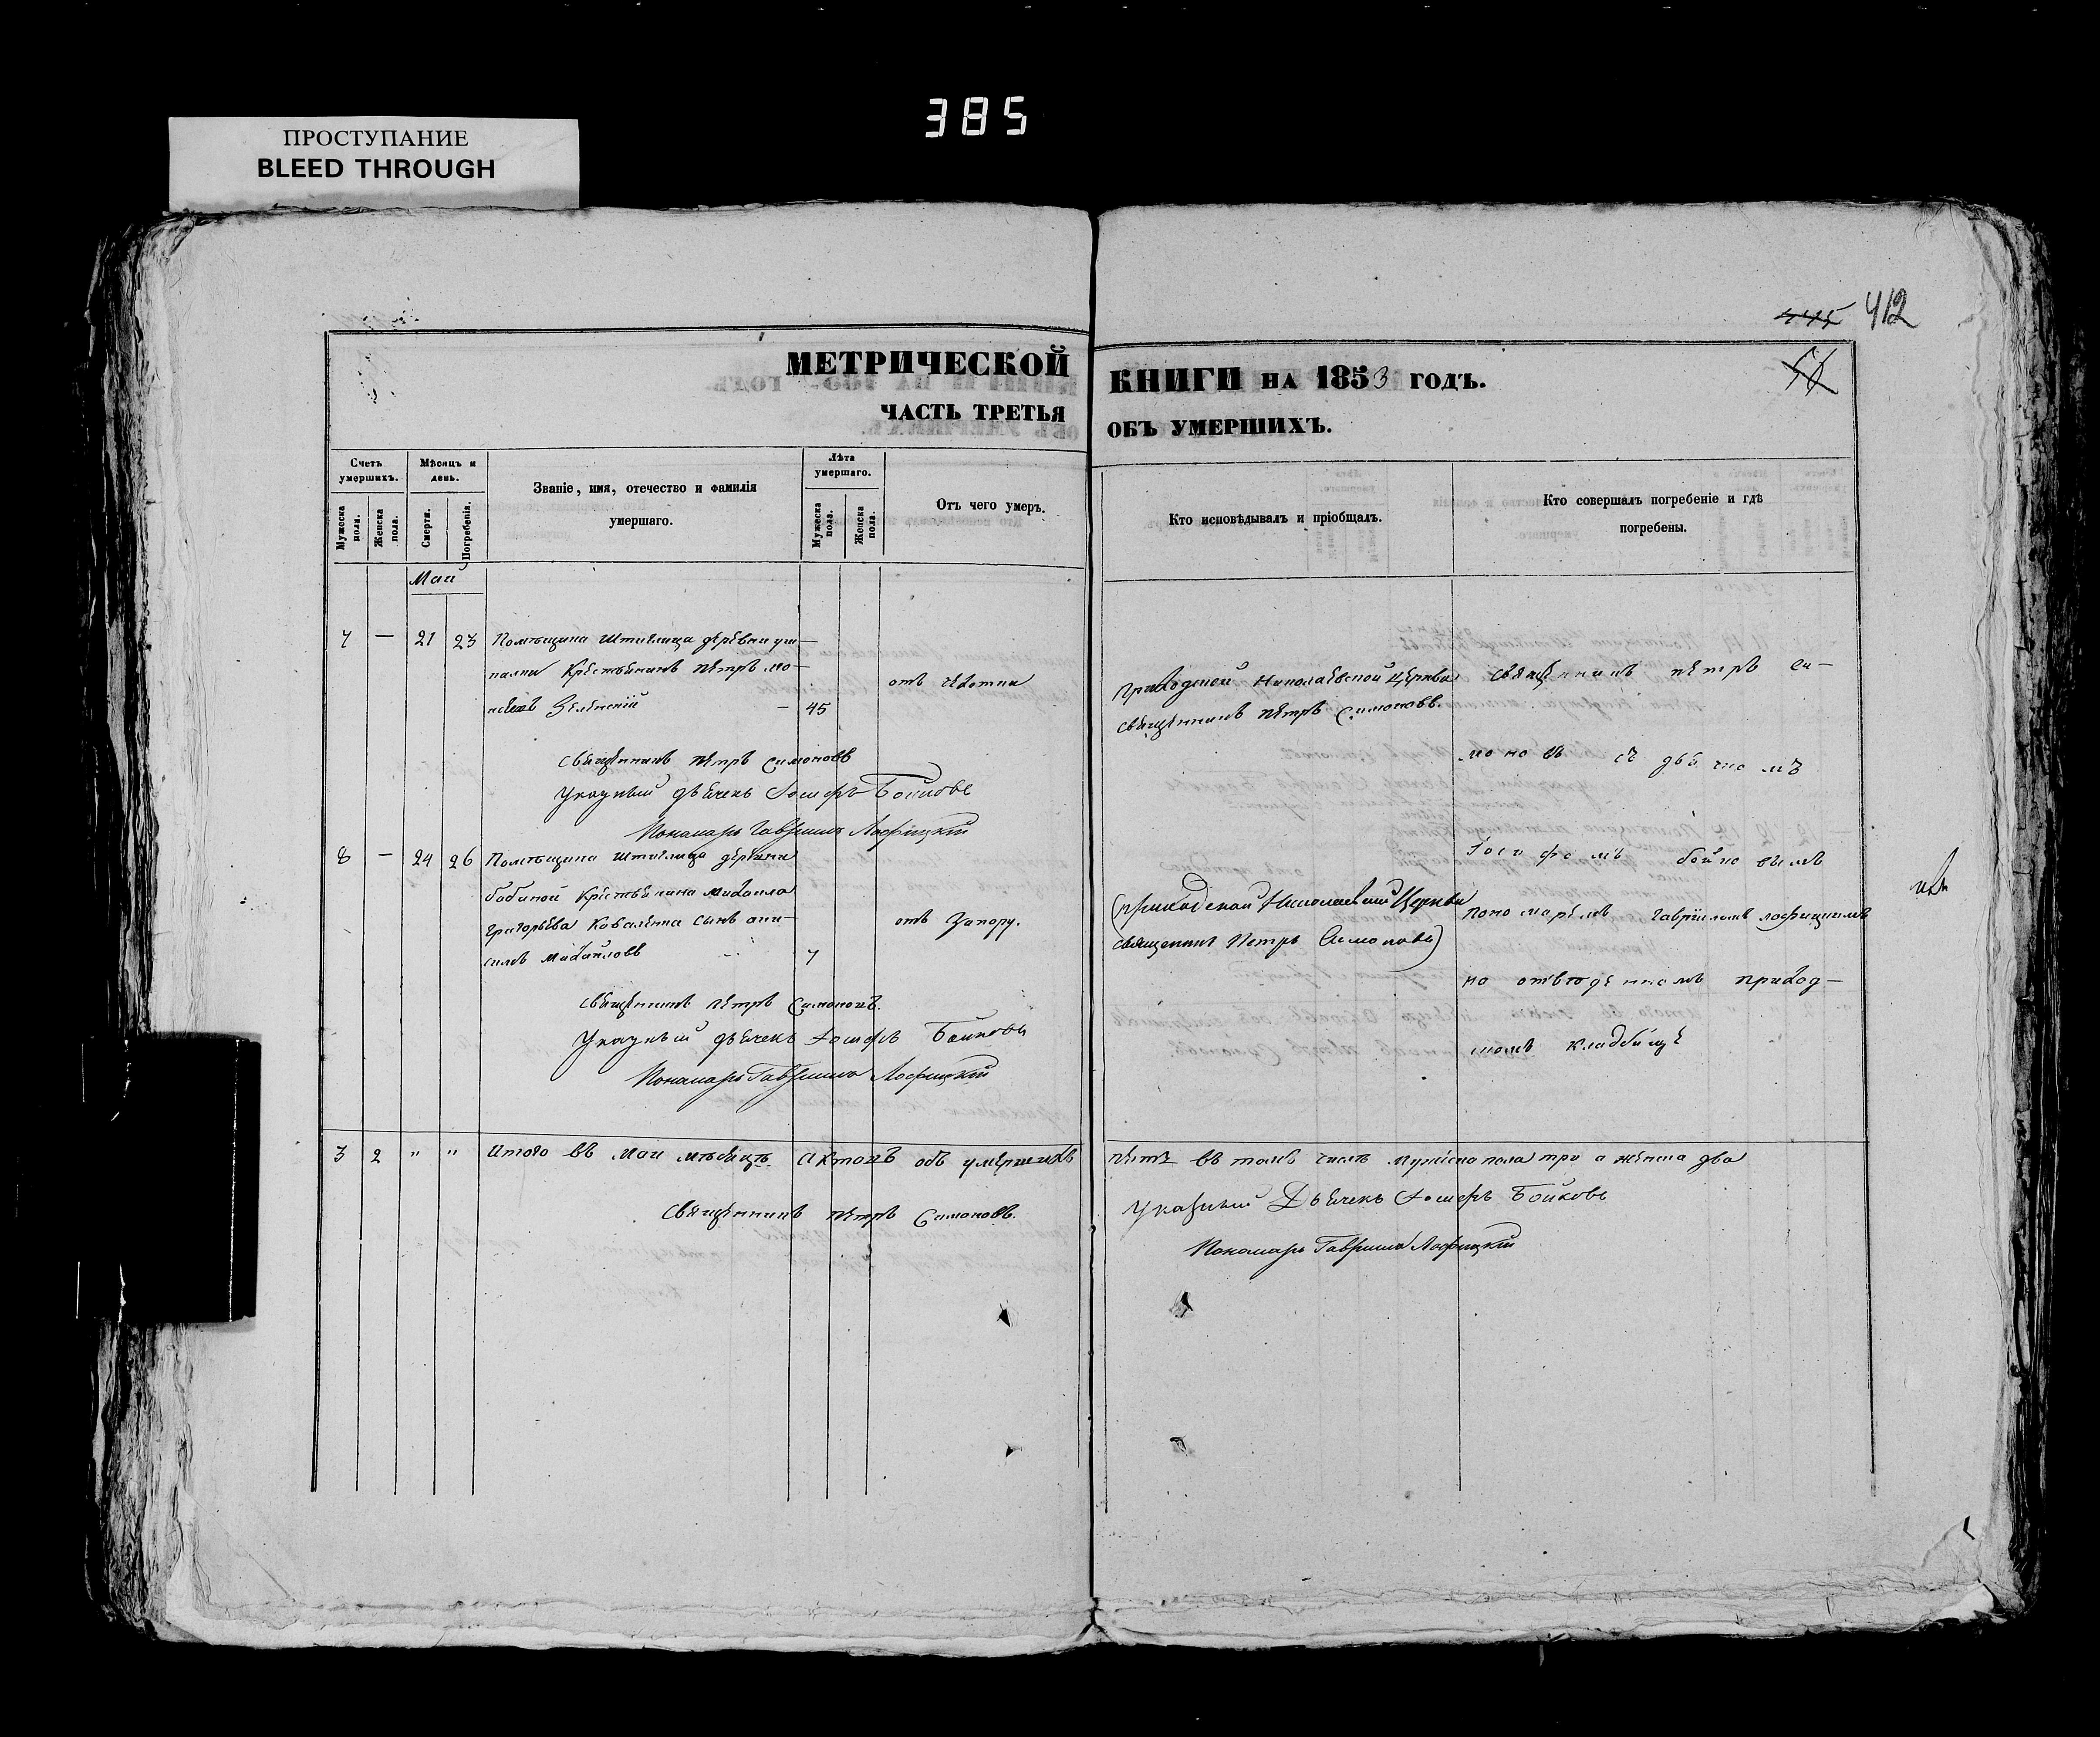 385
ПРОСТУПАНИЕ
BLEED THROUGH
445 412
МЕТРИЧЕСКОЙ КНИГИ НА 1853 ГОДЪ.
ЧАСТЬ ТРЕТЬЯ ОБЪ УМЕРШИХЪ.
Счетъ умершихъ.
Мужеска пола.
Женска пола.
Мѣсяцъ и день.
Смерти.
Погребенія.
Званіе, имя, отечество и фамилія умершаго.
Лѣта умершаго.
Мужеска пола.
Женска пола.
Отъ чего умеръ.
Кто исповѣдывалъ и пріобщалъ.
Кто совершалъ погребеніе и гдѣ погребены.
Маи
7 — 21 23 Помѣщика Штиглица деревни
Крестьянинъ Петръ
Зеленскій — 45
отъ чахотки
Приходской Николаевской Церкви
священникъ Петръ Симоновъ.
священникъ Петръ Симоновъ
Указный дьячекъ Іосифъ Бойковъ
Пономарь Гавріилъ Лофицкій
8 — 24 26 Помѣщика Штиглица деревни
бабиной Крестьянина Михаила
Григорьева Коваленка сынъ они-
симъ Михайловъ 7
отъ запору.
(Приходской Николаевской Церкви
священникъ Петръ Симоновъ)
священникъ Петръ Симоновъ.
Указный дьячекъ Іосифъ Бойковъ
Пономарь Гавріилъ Лофицкій
священникъ петръ си-
моновъ съ дьячкомъ
Іосифомъ бойковымъ
пономаремъ Гавріиломъ лофицкимъ
на отведенномъ приход-
скомъ кладбищѣ
3 2 " " Итого въ Маи мѣсяцѣ актовъ объ умершихъ пять въ томъ числѣ мужеска пола три а женска два
Священникъ Петръ Симоновъ.
Указный Дьячекъ Іосифъ Бойковъ
Пономарь Гавріилъ Лофицкій